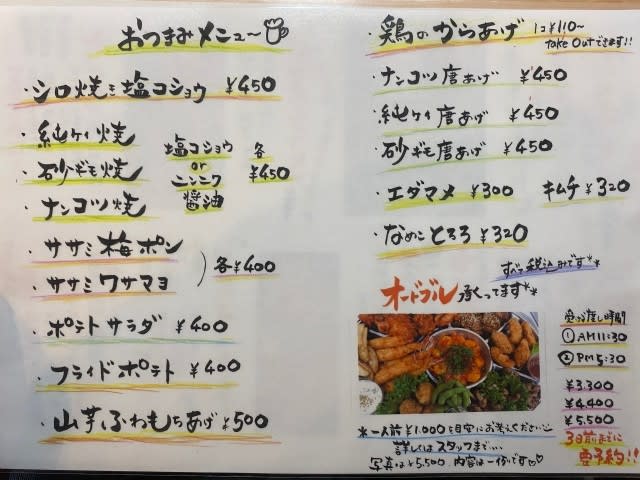 おつまみメニュー
・シロ焼き塩コショウ ¥450
・純ケイ焼
・砂ギモ焼
・ナンコツ焼
塩コショウ
or
ニンニク
醤油
各
¥450
・ササミ梅ポン
・ササミワサマヨ
各¥400
・ポテトサラダ ¥400
・フライドポテト ¥400
・山芋ふわもちあげ ¥500
・鶏のからあげ 1コ¥110~
take Outできます!!
・ナンコツ唐あげ ¥450
・純ケイ唐あげ ¥450
・砂ギモ唐あげ ¥450
・エダマメ ¥300 キムチ ¥320
・なめことろろ ¥320
すべて税込みです*
オードブル承ってます**
受け渡し時間
①AM11:30
②PM5:30
¥3.300
¥4.400
¥5.500
3日前までに
要予約!!
*一人前¥1.000を目安にお考えください
詳しくはスタッフまで…
写真は¥5.500 内容は一例です♡♡